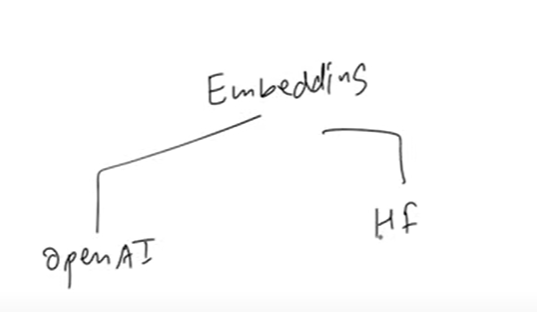 Embedding
OpenAI
HF